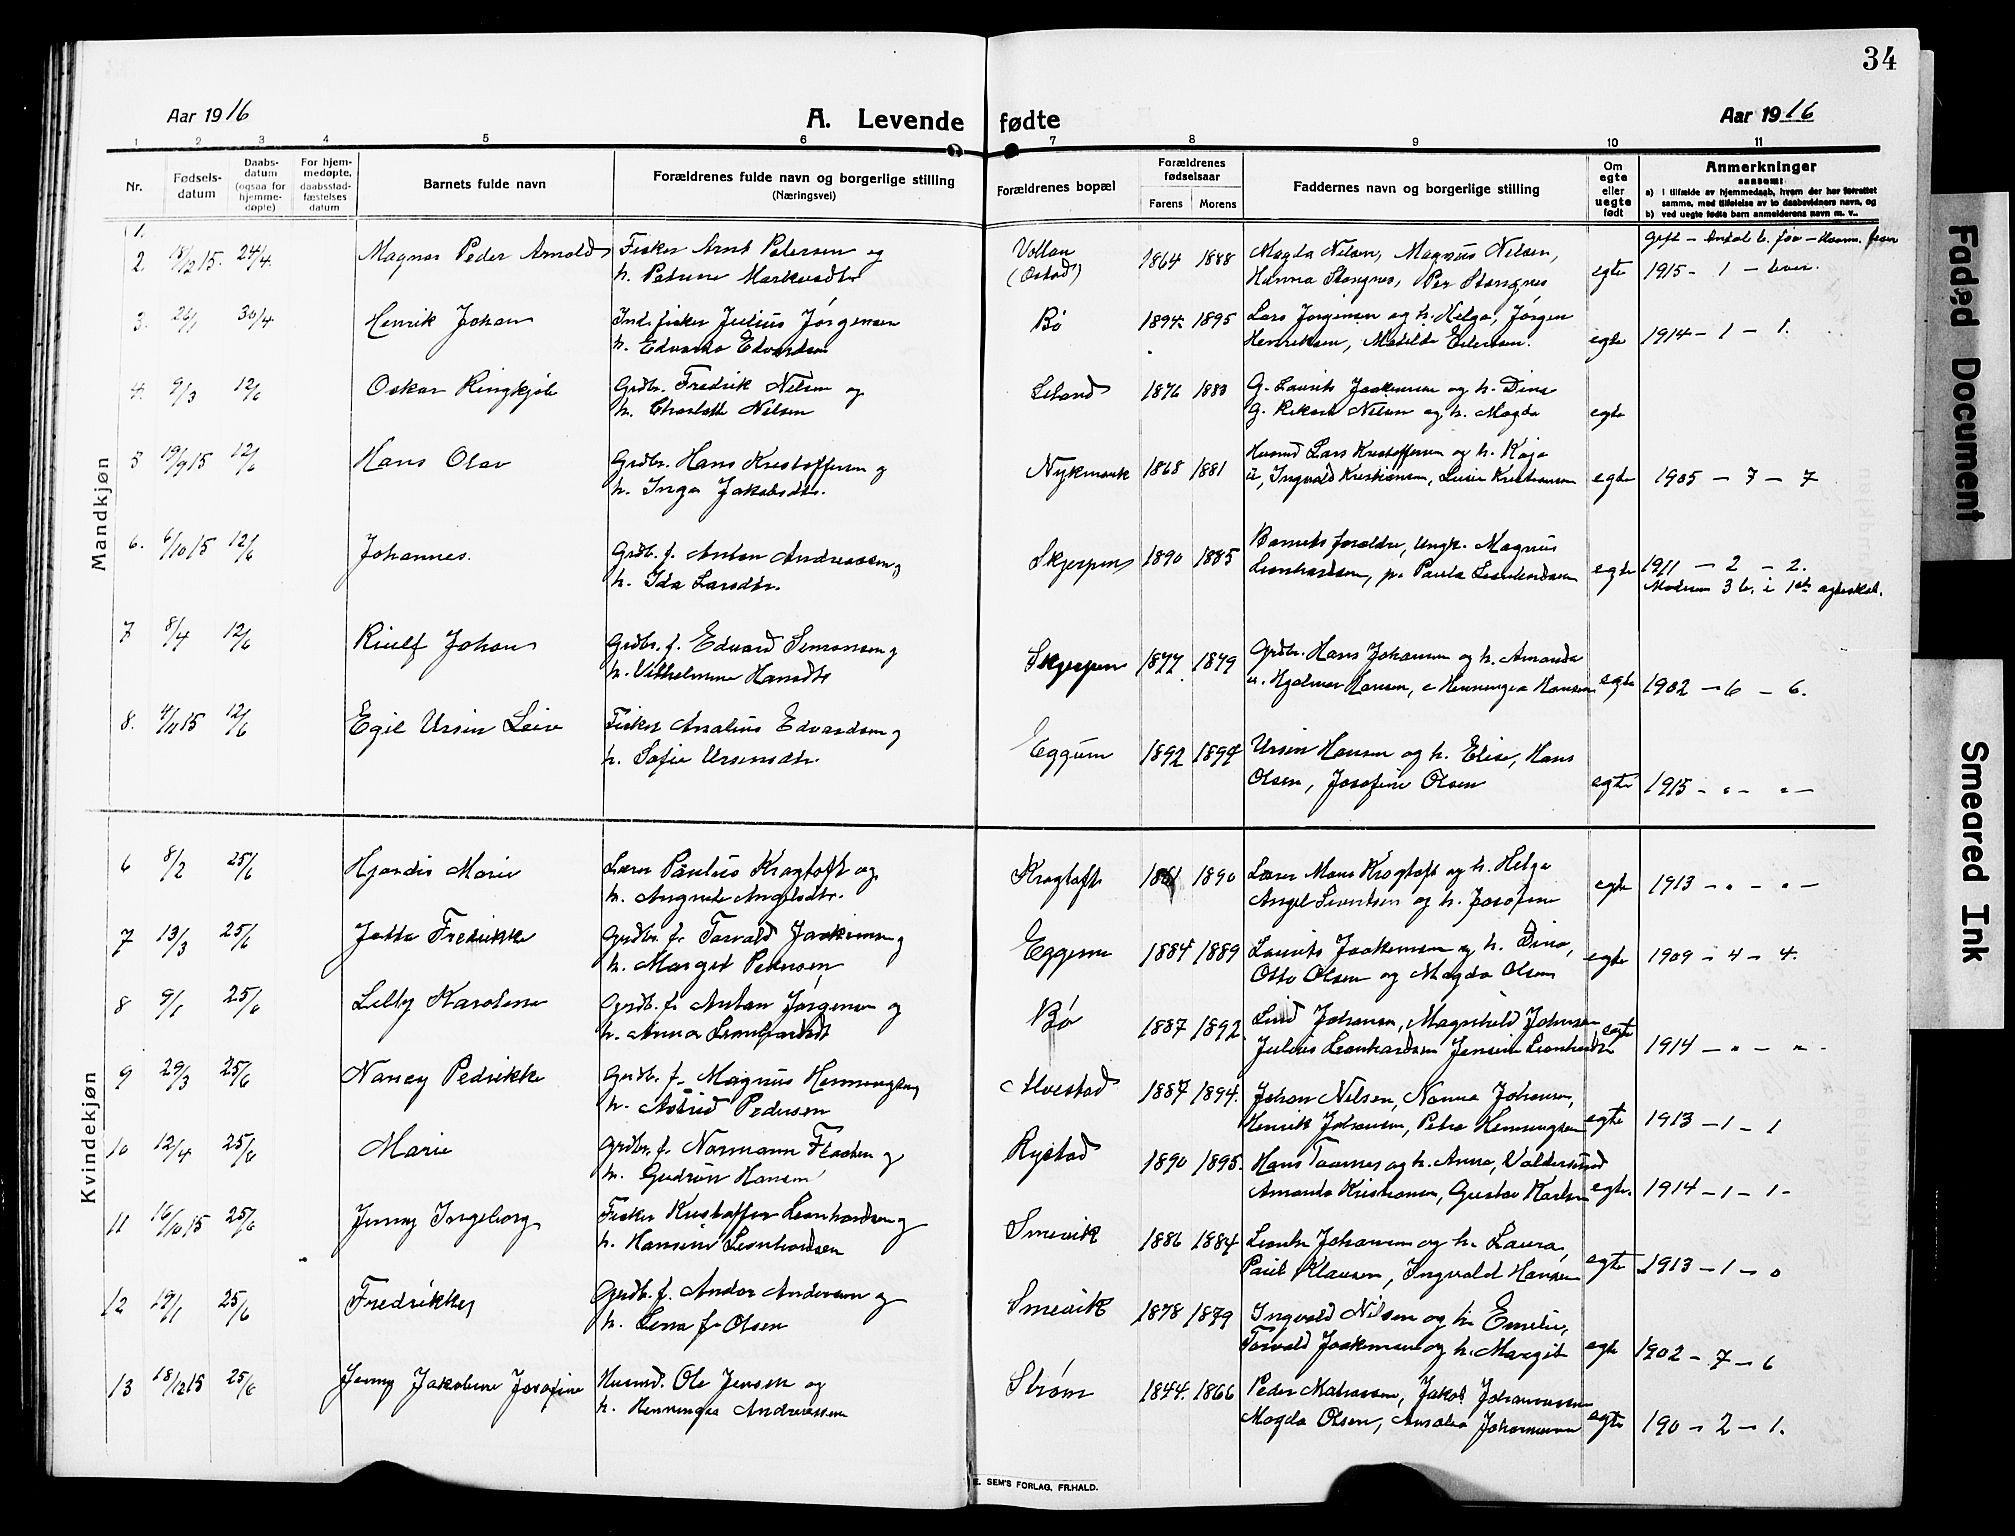 34
Aar 1916
A. Levende fødte
Aar 1916
1 2 3 4 5 6 7 8 9 10 11
Nr.
Fødsels-
datum
Daabs-
datum
(ogsaa for
hjemme-
døpte)
For hjem-
medøpte,
daabsstad-
fæstelses
datum
Barnets fulde navn
Forældrenes fulde navn og borgerlige stilling
(Næringsvei)
Forældrenes bopæl
Forældrenes
fødselsaar
Farens Morens
Faddernes navn og borgerlige stilling
Om
egte
eller
uegte
født
Anmerkninger
saasom:
a) i tilfælde av hjemmedaab, hvem der har forrettet
samme, med tilføielse av to daabsvidners navn, og
b) ved uegte fødte barn anmelderens navn m. v..
Mandkjøn
1.
2. 18/2 15. 24/4. Magnus Peder Arnold Fisker Arnt Petersen og Vollan 1864 1888 Magda Nilsen, Magnus Nilsen, egte
h. Petrine Markusdtr (Ostad) Hanna Stangnes, Per Stangnes 1915 - 1 -
3. 26/1 30/4 Henrik Johan Inds. fisker Julius Jørgensen Bø 1894 1895 Lars Jørgensen og h. Helga, Jørgen
h. Edvarda Edvardsen Henriksen, Matilde egte 1914 - 1 - 1.
4. 9/3 12/6 Oskar Ringkjøb Grdbr. Fredrik Nilsen og Leland 1876 1883 G. Laurits Joakimsen og h. Dina
h. Charlotte Nilsen G. Rikard Nilsen og h. Magda egte
5 19/9 15 12/6 Hans Olav Grdbr. Hans Kristoffersen og Nykmark 1868 1881 Husmd Lars Kristoffersen og h. Kaja
h. Inga Jakobsdtr. Ingvald Kristiansen, Kristiansen egte 1905 - 7 - 7
6. 6/10 15 12/6 Johannes. Grdb. f. Anton Andreassen og Skjerpen 1890 1885 Barnets forældre, Ungk. Magnus
h. Ida Larsdtr. Leonhardsen, pi. Paula Leonhardsen egte 1911 - 2 - 2.
Moderen 3 b. i 1ste egteskab.
7 8/4 12/6 Johan Grdbr. f. Edvard Simonsen og Skjerpen 1877 1879 Grdbr. Hans Johansen og h. Amanda
h. Vilhelmine Hansdtr Hjalmar Hansen, Henningea Hansen egte 1902 - 6 - 6.
8. 4/11 15 12/6 Egil Ursin Leiv Fisker Analius Edvardsen og Eggum 1892 1894 Ursin Hansen og h. Elise, Hans
h. Sofie Ursinsdtr. Olsen, Josefine Olsen egte 1915 - " - " -
Kvindekjøn
6 8/2 25/6 Hjørdis Marie Lærer Paulus Krogtoft og Krogtoft 1861 1890 Lærer Mons Krogtoft og h. Helga
h. Angnete Angelsdtr. Angel Sivertsen og h. Josefine egte 1913 - " - " -
7 13/3 25/6 Jotta Fredrikke Grdbr. f. Torvald Joakimsen og Eggum 1884 1889 Laurits Joakimsen og h. Dina,
h. Margit Petersen Otto Olsen og Magda Olsen egte 1909 - 4 - 4.
8 9/1 25/6 Lilly Karoline Grdb. f. Anton Jørgensen og Bø 1887 1892. Johansen, Magnhild Johnsen, egte
h. Anna Leonhardsdt Julius Leonhardsen Jensine Leonhardsen 1914 - " - " -
9 29/3 25/6 Nancy Pedrikke Grdb. f. Magnus Henningsen og 1887 1894. Johan Nilsen, Nanna Johansen,
h. Astrid Pedersen Henrik Johansen, Petra Henningsen egte 1913 - 1 - 1
10 12/4 25/6 Marie Grdbr. f. Normann Flaaten og Rystad 1890 1895. Hans Taarnes og h. Anna, Valdersund
h. Gudrun Hansen Amanda Kristiansen, Gustav Karlsen egte. 1914 - 1 - 1 -
11 16/10 15 25/6 Jenny Ingeborg Fisker Kristoffer Leonhardsen og Smevik 1886 1884 Johansen og h. Laura,
h. Hansine Leonhardsen Paul Klausen, Ingvald Hansen egte 1913 - 1 - 0
12 19/1 25/6 Fredrikke Grdb. f. Andor Andersen og Smevik 1878 1879 Ingvald Nilsen og h. Emilie,
h. Lena f. Olsen Torvald Joakimsen og h. Margit egte 1902 - 7 - 6
13 18/12 15 25/6 Jenny Jakobine Josefine Husmd. Ole Jensen og Strøm 1844. 1866 Peder Mathiassen, Jakob Johannessen
h. Henningea Andreassen Magda Olsen, Amalia Johannessen egte 190 - 2 - 1.
E. SEM'S FORLAG, FR.HALD.
Faded Document
Smeared Ink